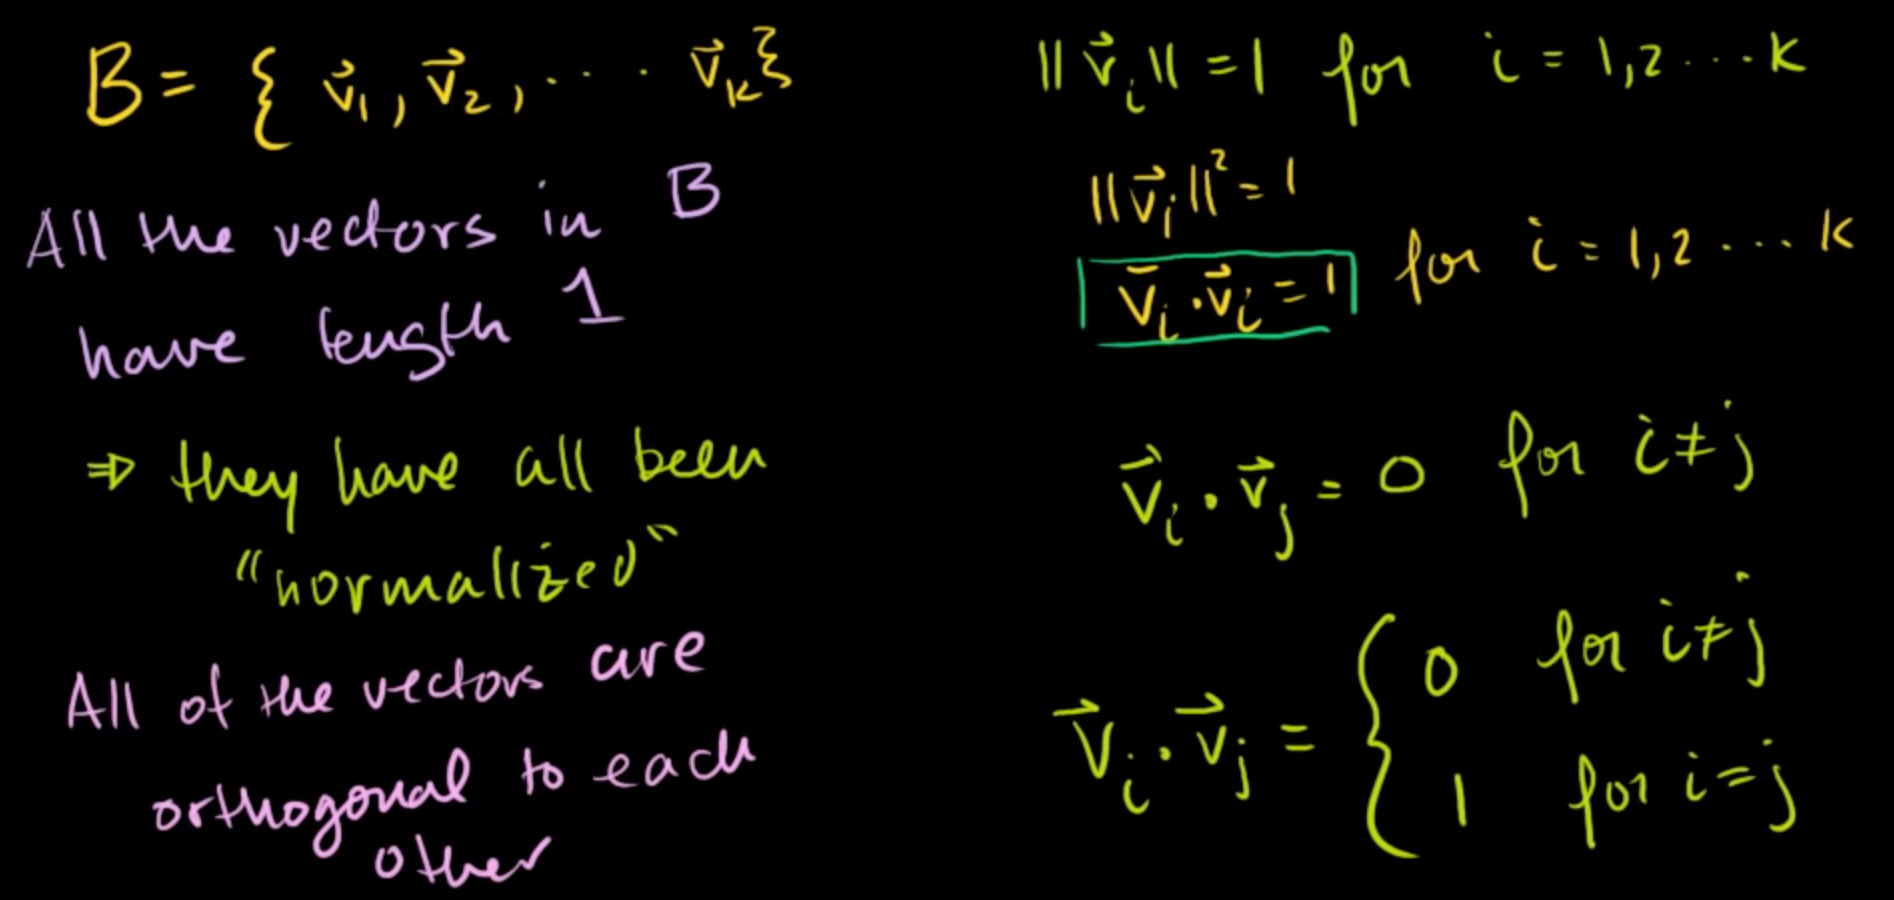 B = { v⃗₁, v⃗₂, ..... v⃗ₖ}
All the vectors in B
have length 1
⇒ they have all been
"normalized"
All of the vectors are
orthogonal to each
other
||v⃗ᵢ|| = 1 for i = 1,2 ... k
||v⃗ᵢ||² = 1
v⃗ᵢ · v⃗ᵢ = 1 for i = 1,2 ... k
v⃗ᵢ · v⃗ⱼ = 0 for i ≠ j
v⃗ᵢ · v⃗ⱼ = { 0 for i ≠ j
1 for i = j